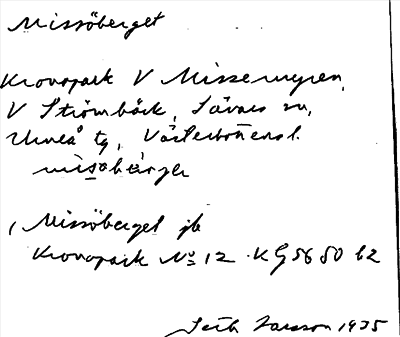 Missöberget
Kronopark V Missemyren,
V Strömbäck, Sävars sn,
Umeå tg, Västerbottens l.
misöbärjer
Missöberget jb
Kronopark No 12 . K G 56 50 62
Seth Larsson 1935